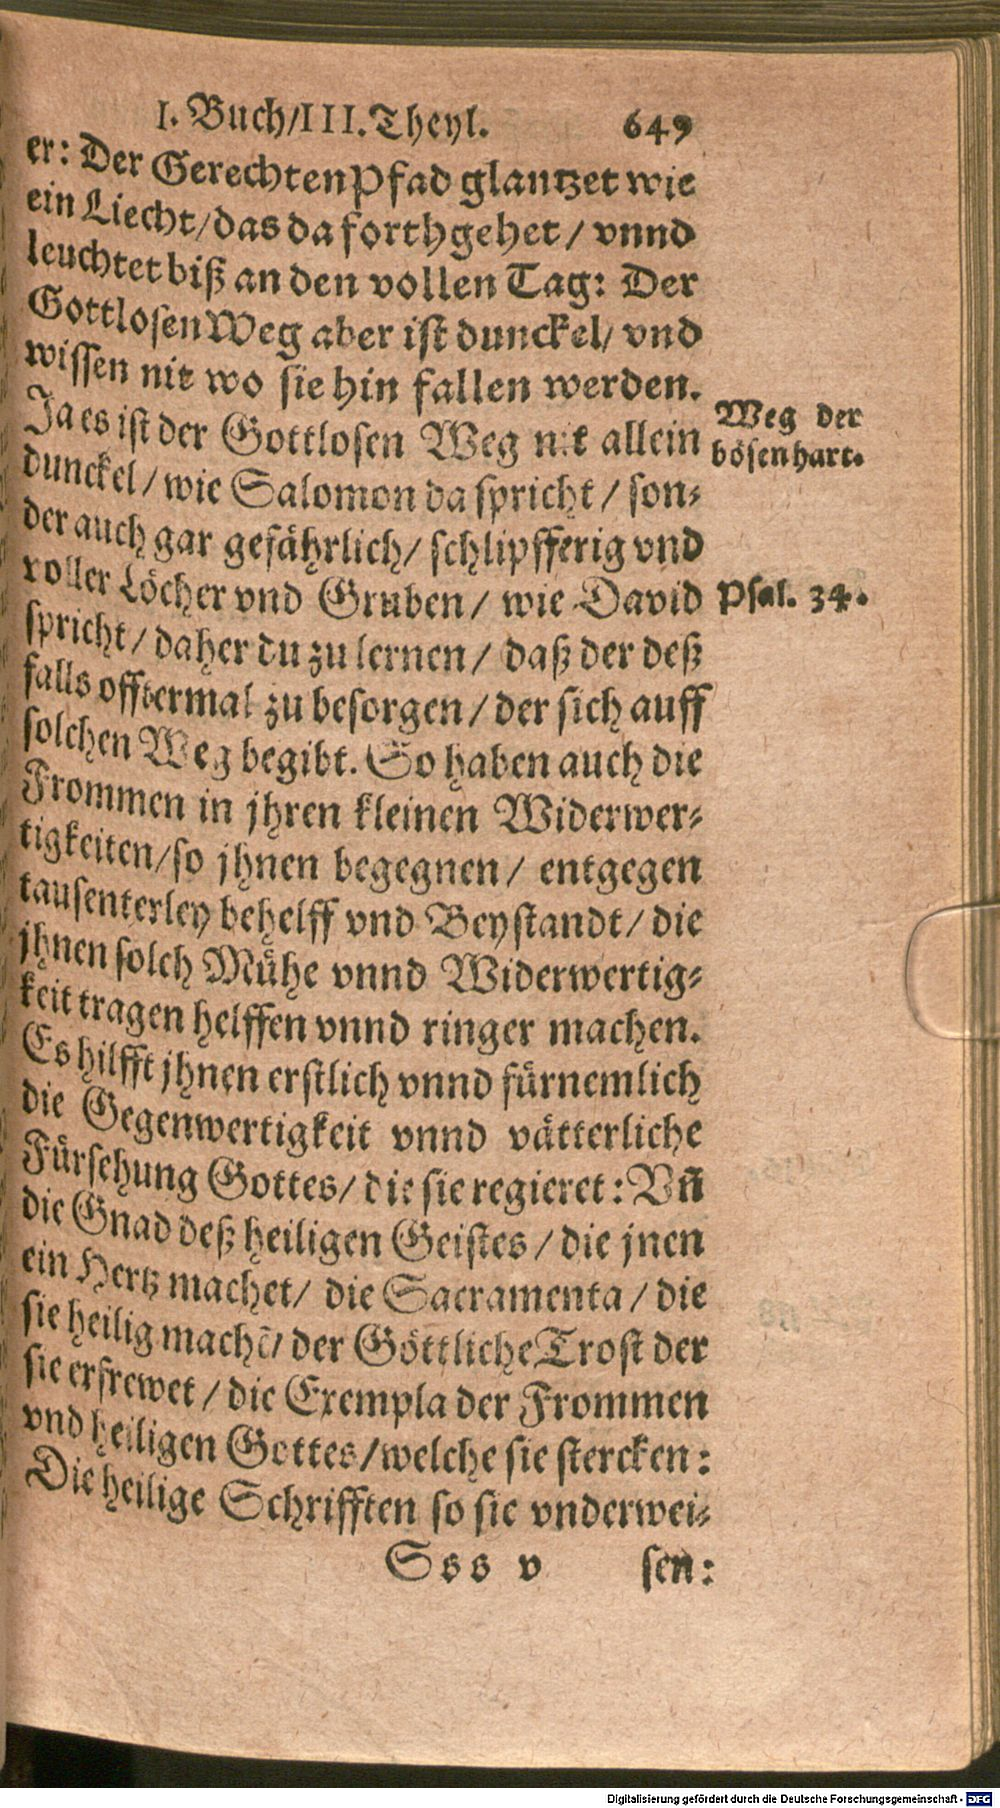 I. Buch/III. Theyl. 649
er: Der Gerechten Pfad glantzet wie
ein Liecht/das da forthgehet/ vnnd
leuchtet biß an den vollen Tag: Der
Gottlosen Weg aber ist dunckel/ vnd
wissen nit wo sie hin fallen werden.
Ja es ist der Gottlosen Weg nit allein
dunckel/wie Salomon da spricht/ son-
der auch gar gefährlich/ schlipfferig vnd
voller Löcher vnd Gruben/ wie David
spricht/ daher du zu lernen/ daß der deß
falls offtermal zu besorgen/ der sich auff
solchen Weg begibt. So haben auch die
Frommen in jhren kleinen Widerwer-
tigkeiten/so jhnen begegnen/ entgegen
tausenterley behelff vnd Beystandt/ die
jhnen solch Mühe vnnd Widerwertig-
keit tragen helffen vnnd ringer machen.
Es hilfft jhnen erstlich vnnd fürnemlich
die Gegenwertigkeit vnnd vätterliche
Fürsehung Gottes/ die sie regieret: Vñ
die Gnad deß heiligen Geistes/ die jnen
ein Hertz machet/ die Sacramenta/ die
sie heilig machē/ der Göttliche Trost der
sie erfrewet/ die Exempla der Frommen
vnd heiligen Gottes/welche sie stercken:
Die heilige Schrifften so sie vnderwei-
Sss v sen:
Weg der
bösen hart.
Psal. 34.
Digitalisierung gefördert durch die Deutsche Forschungsgemeinschaft - DFG